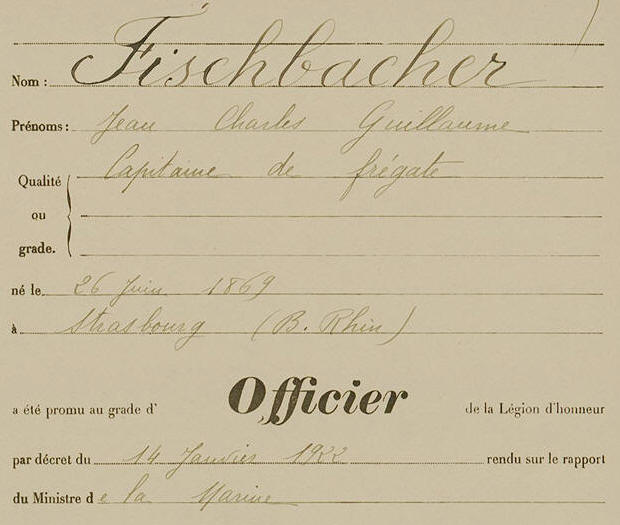 Nom : Fischbacher
Prénoms : Jean Charles Guillaume
Qualité ou grade. Capitaine de frégate
né le 26 Juin 1869
à Strasbourg (B. Rhin)
a été promu au grade d' Officier de la Légion d'honneur
par décret du 14 Janvier 1922 rendu sur le rapport
du Ministre de la Marine